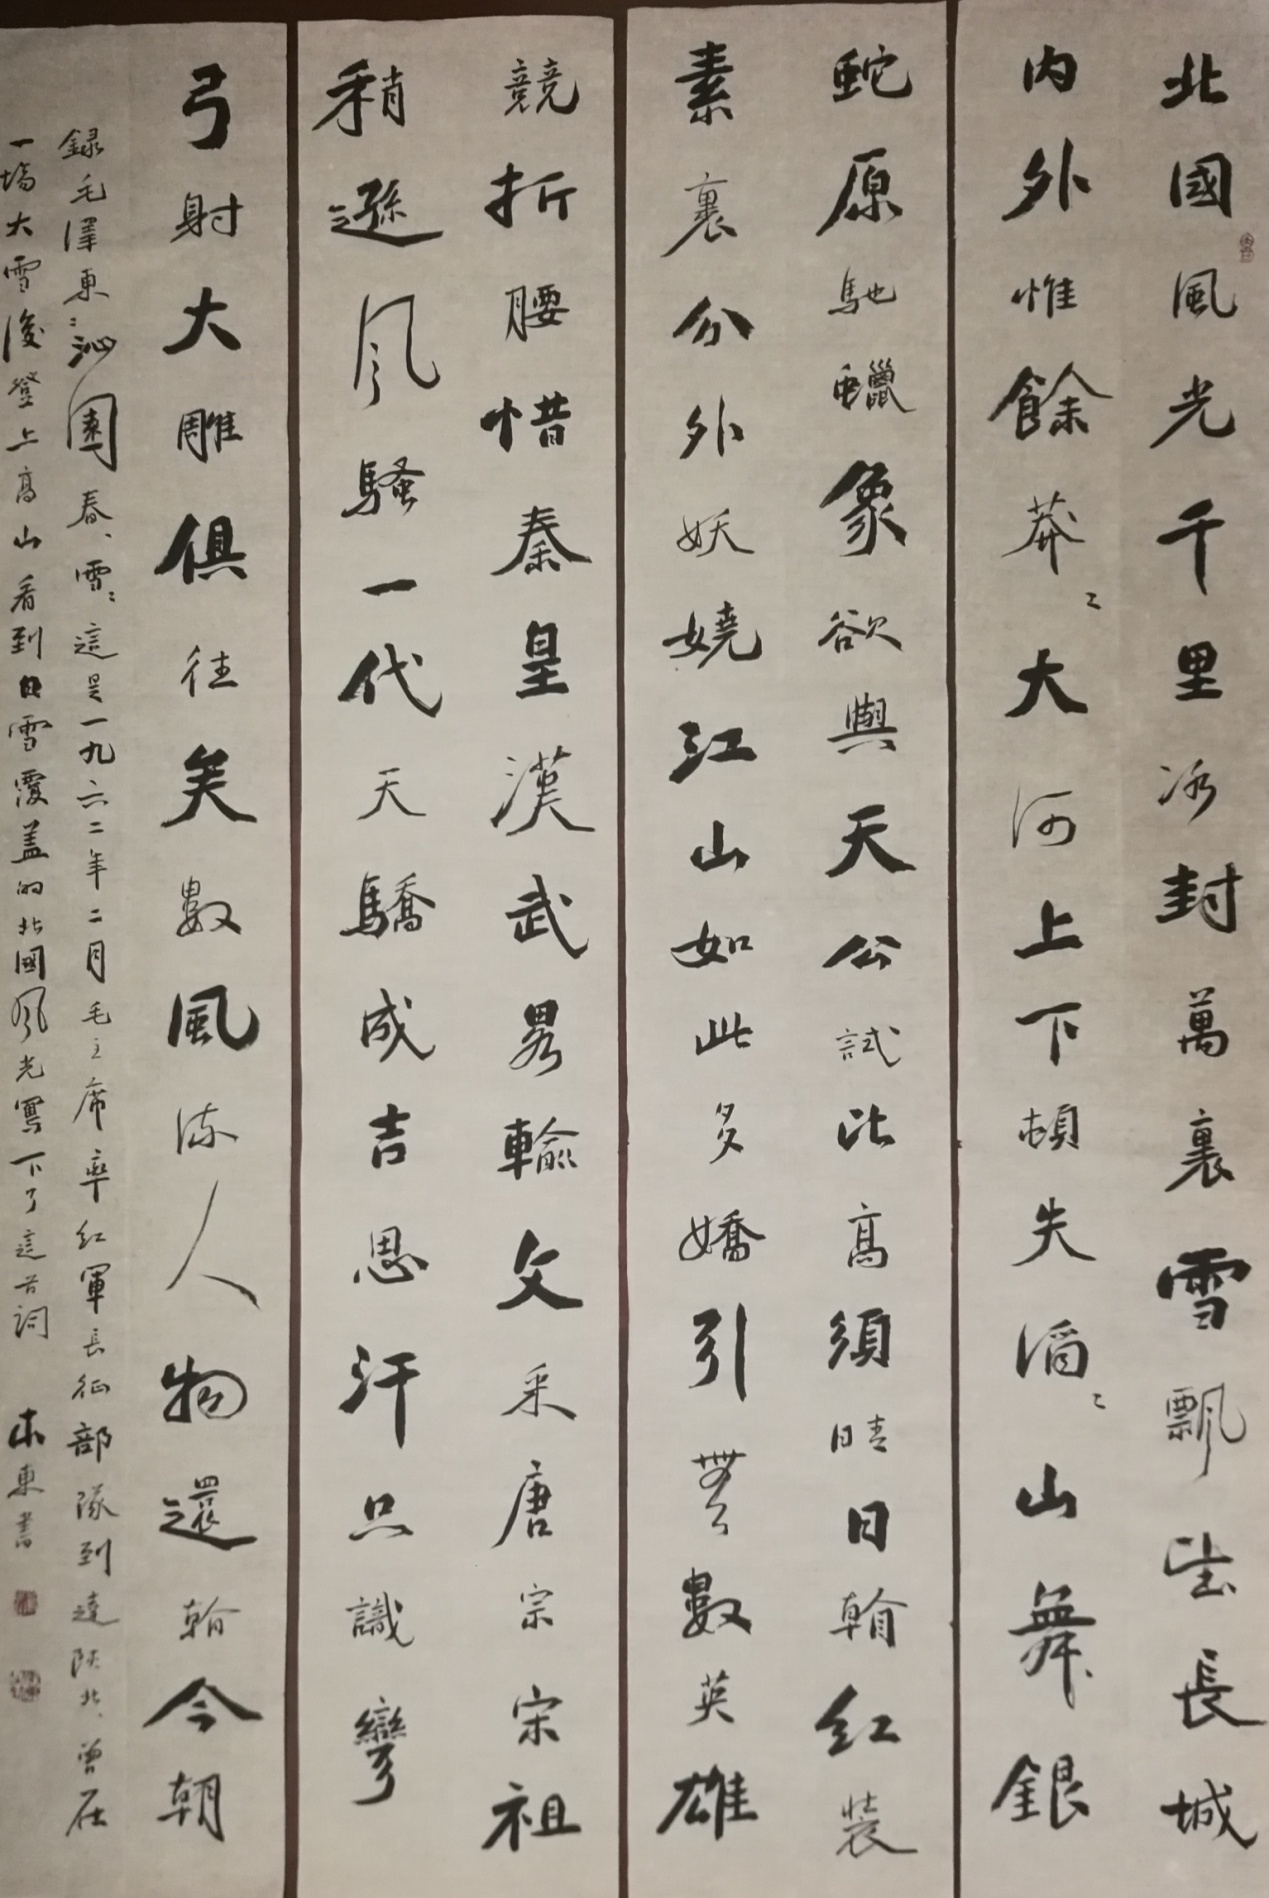 北國風光千里冰封萬裏雪飄望長城
内外惟餘莽〻大河上下頓失滔〻山舞銀
蛇原馳蠟象欲與天公試比高須晴日翰紅裝
素裏分外妖嬈江山如此多嬌引無數英雄
競折腰惜秦皇漢武畧輸文采唐宗宋祖
稍遜風騷一代天驕成吉思汗只識彎
弓射大雕俱往矣數風流人物還翰今朝
録毛澤東:沁園春、雪:這是一九六二年二月毛主席率紅軍長征部隊到達陕北、曾在
一塲大雪後登上高山看到白雪覆盖的北國風光寫下了這首詞 東書